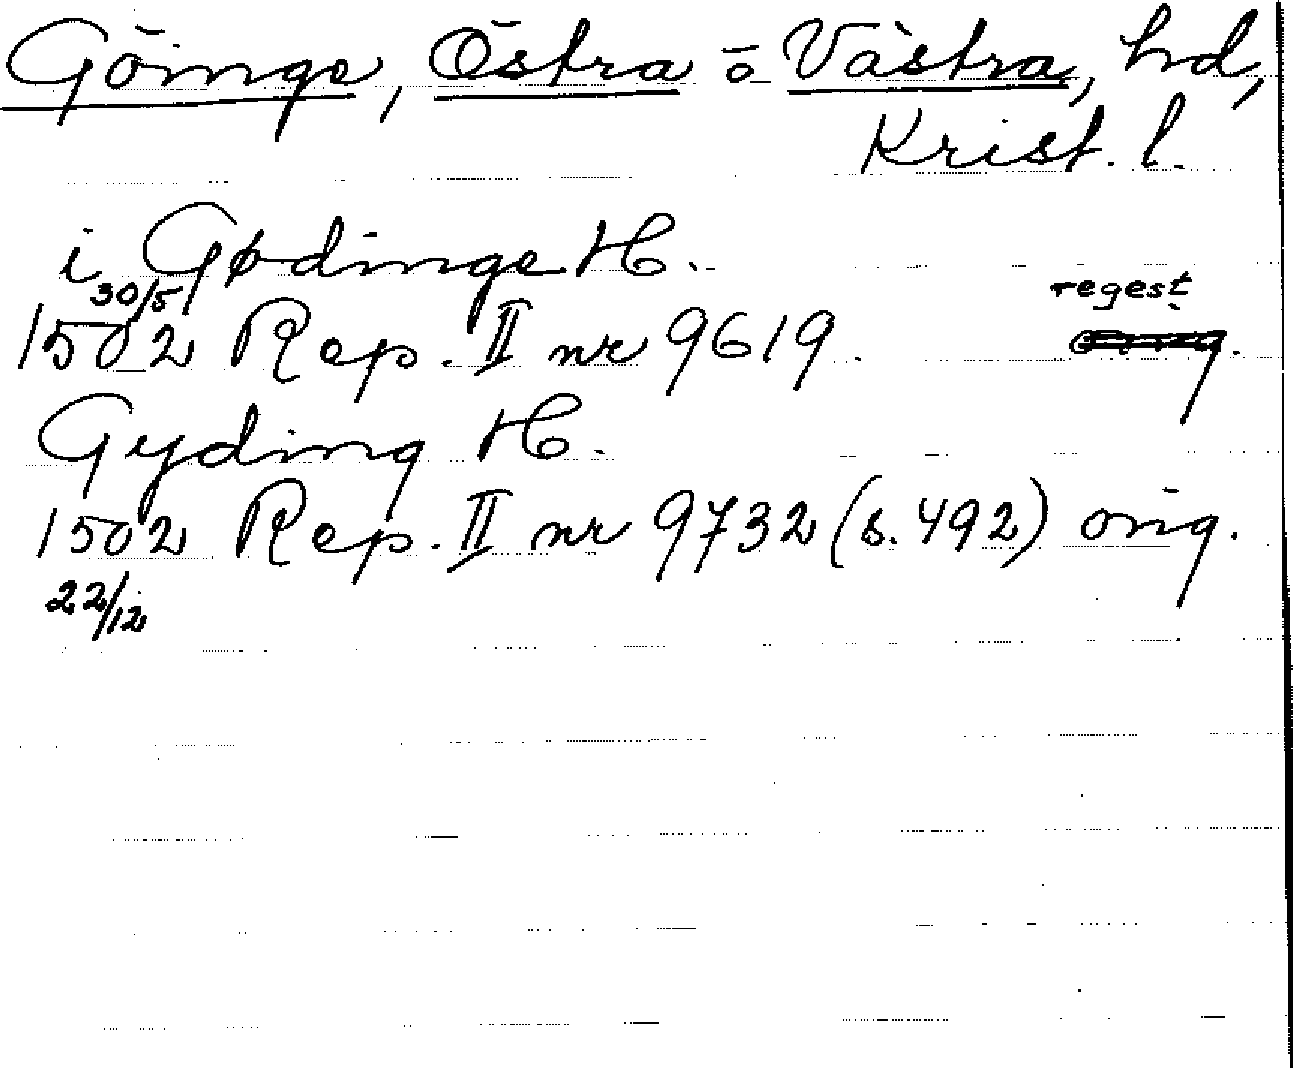 Göinge, Östra o Västra, hd,
Krist. l.
i Gødinge H.
30/5
1502 Rep. II nr 9619. regest
Gyding H.
1502 Rep. II nr 9732 (s. 492) orig.
22/12